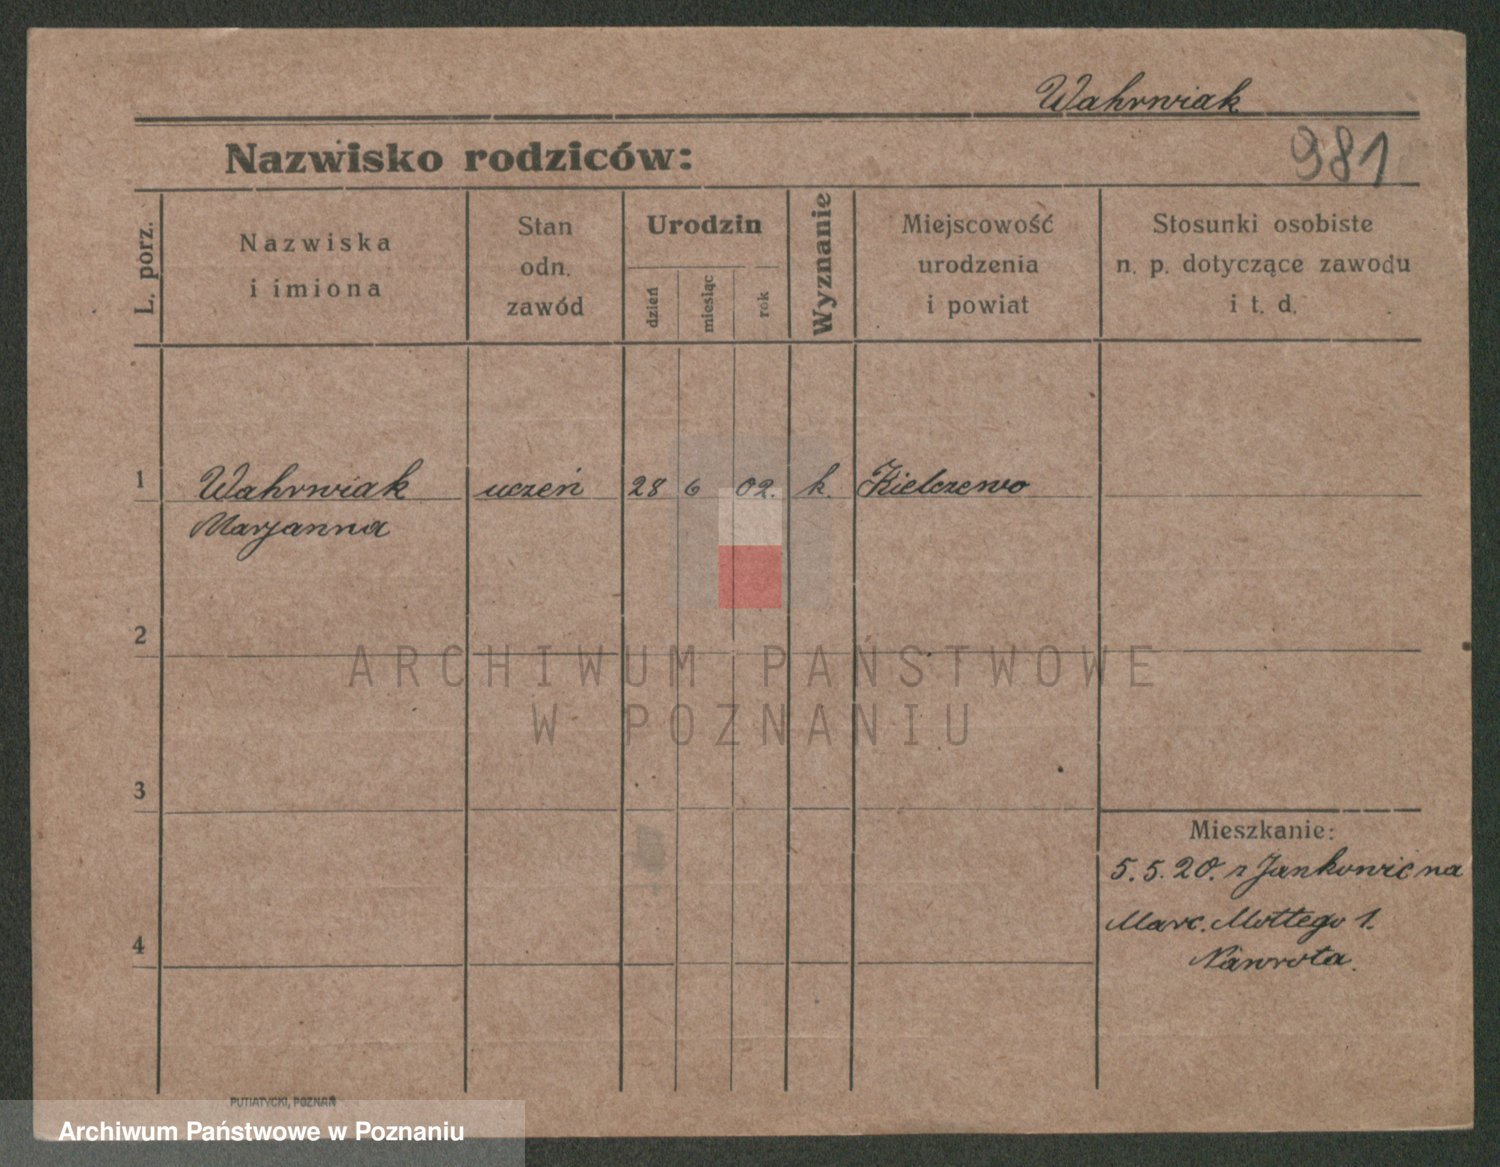 Wahrwiak
Nazwisko rodziców:
981
L. porz.
Nazwiska
i imiona
Stan
odn.
zawód
Urodzin
dzień
miesiąc
rok
Wyznanie
Miejscowość
urodzenia
i powiat
Stosunki osobiste
n. p. dotyczące zawodu
i t. d.
1 Wahrwiak uczeń 28 6 02. k. Kielczewo
Marjanna
2
3
4
Mieszkanie:
5. 5. 20. z Jankowic na
Marc. Mottego 1.
Nawrota.
PUTIATYCKI, POZNAŃ
ARCHIWUM PAŃSTWOWE
W POZNANIU
Archiwum Państwowe w Poznaniu